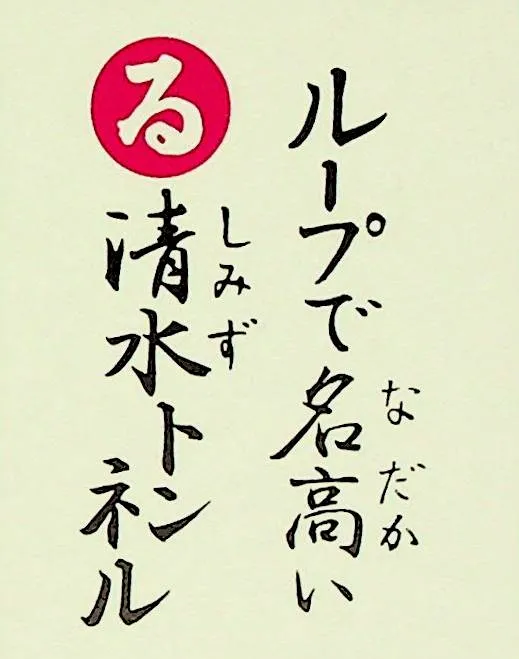 る
ループで名高い
なだか
清水トンネル
しみず